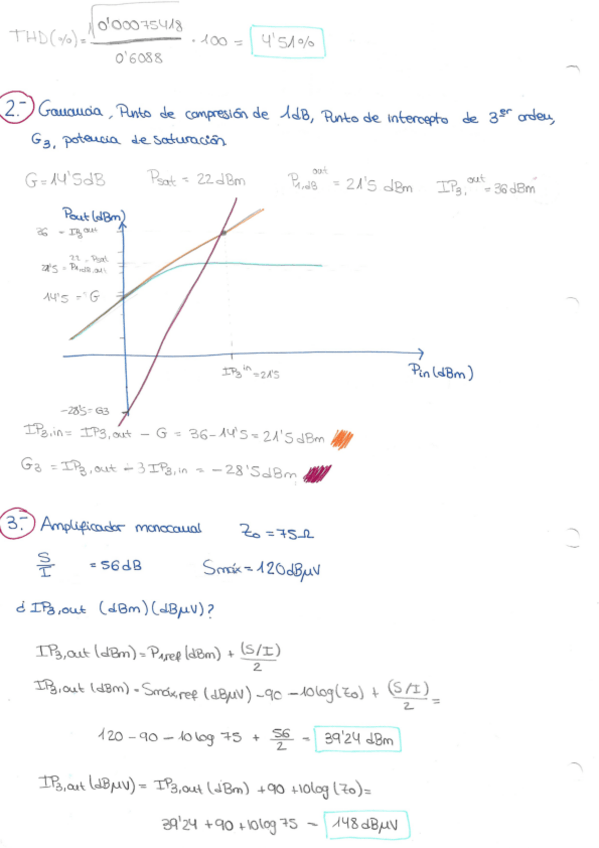 THD(%) = √0'00075418 / 0'6088 · 100 = 4'51%
2.- Ganancia, Punto de compresión de 1dB, Punto de intercepto de 3er orden,
G3, potencia de saturación
G = 14'5dB Psat = 22dBm P1,dB out = 21'5 dBm IP3, out = 36dBm
Pout (dBm)
36 - IP3 out
22 - Psat
21'5 = P1,dB,out
14'5 = G
IP3 in = 21'5
Pin (dBm)
-28'5 = G3
IP3,in = IP3,out - G = 36 - 14'5 = 21'5 dBm
G3 = IP3,out - 3 IP3,in = -28'5 dBm
3.- Amplificador monocanal Z0 = 75Ω
S/I = 56dB Smáx = 120dBμV
¿IP3,out (dBm)(dBμV)?
IP3,out (dBm) = P1ref (dBm) + (S/I)/2
IP3,out (dBm) = Smáx,ref (dBμV) - 90 - 10log(Z0) + (S/I)/2 =
120 - 90 - 10log 75 + 56/2 = 39'24 dBm
IP3,out (dBμV) = IP3,out (dBm) + 90 + 10log(Z0) =
39'24 + 90 + 10log 75 = 148dBμV